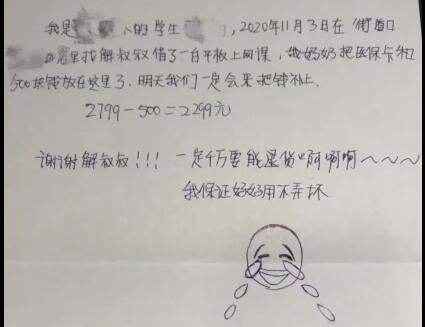 我是 小的学生 , 2020年11月3日在 街道口
里找解叔叔借了一台平板上网课, 我奶奶把医保卡和
500块钱放在这里了. 明天我们一定会来把钱补上.
2799-500=2299元
谢谢解叔叔!!! 一定千万要能退货口阿啊啊~~~
我保证好好用不弄坏